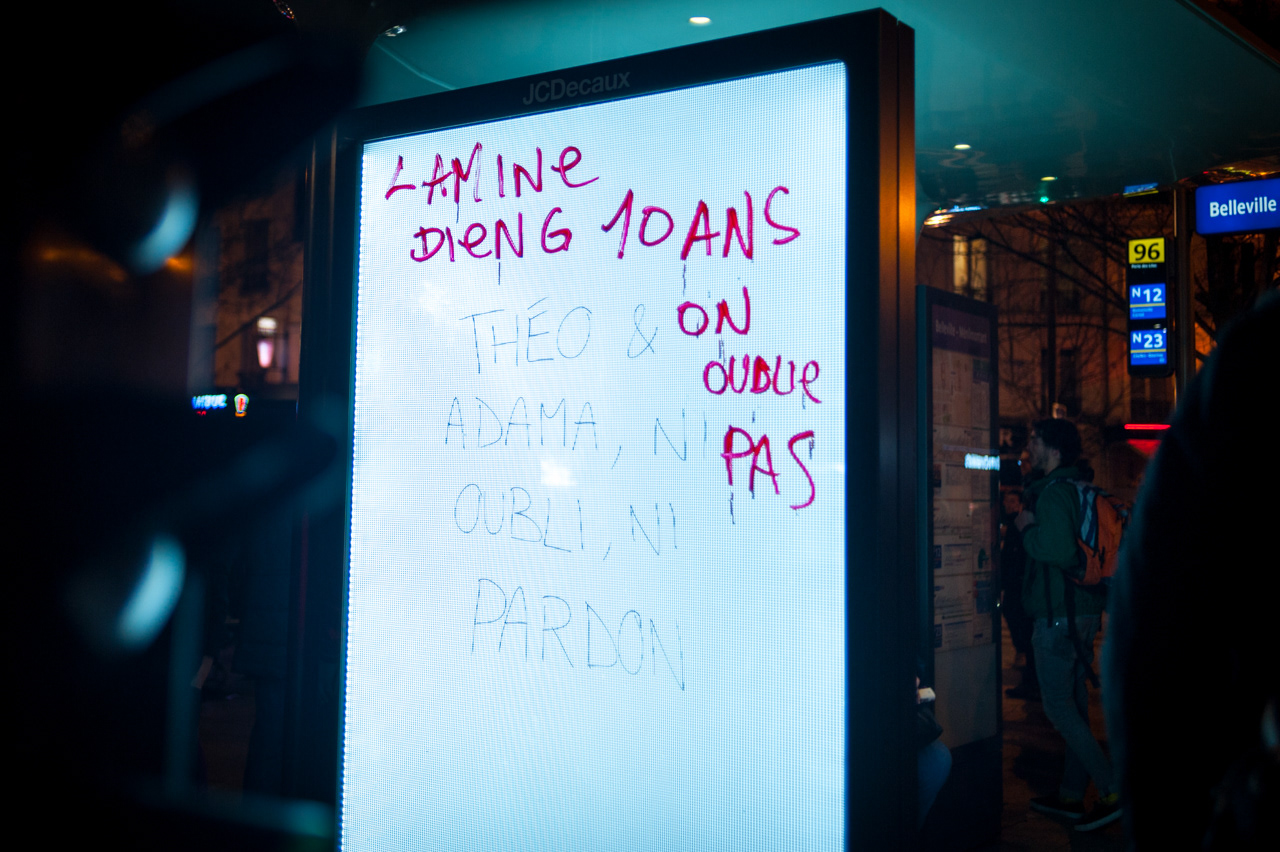 JCDecaux
LAMINE
DIENG 10 ANS
ON
OUBLIE
PAS
THÉO &
ADAMA, NI
OUBLI, NI
PARDON
Belleville
96
N12
N23